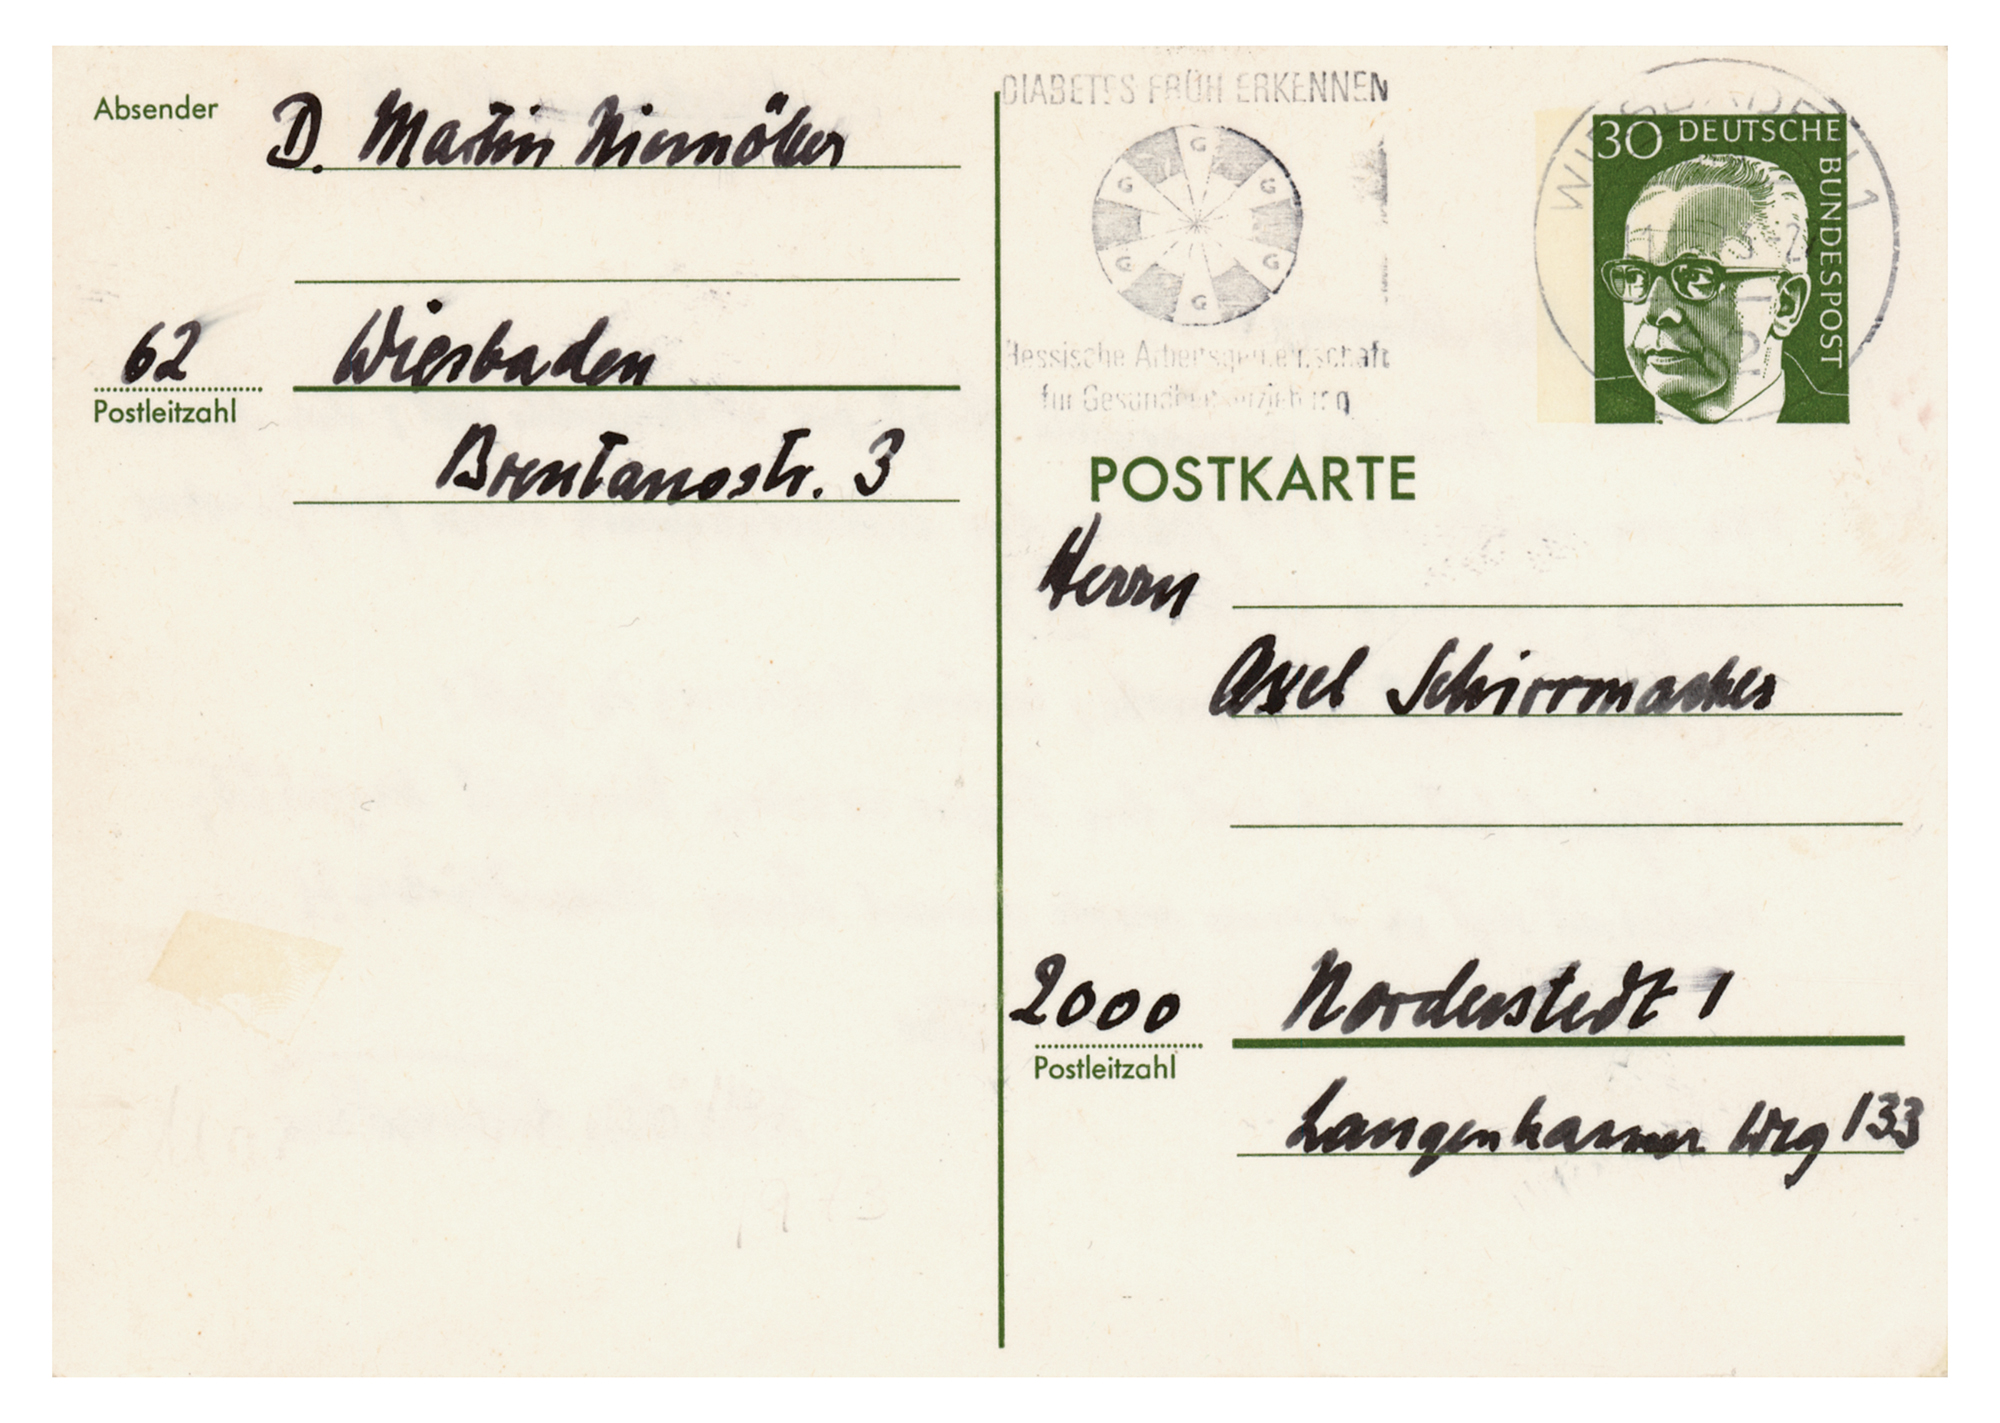 Absender
D. Martin Niemöller
62 Wiesbaden
Postleitzahl
Brentanostr. 3
DIABETES FRÜH ERKENNEN
G
G
G
G
G
G
Hessische Arbeitsgemeinschaft
für Gesundheitserziehung
WIESBADEN 1
30 DEUTSCHE
BUNDESPOST
POSTKARTE
Herrn
Axel Schirrmacher
2000 Norderstedt 1
Postleitzahl
Langenharmer Weg 133